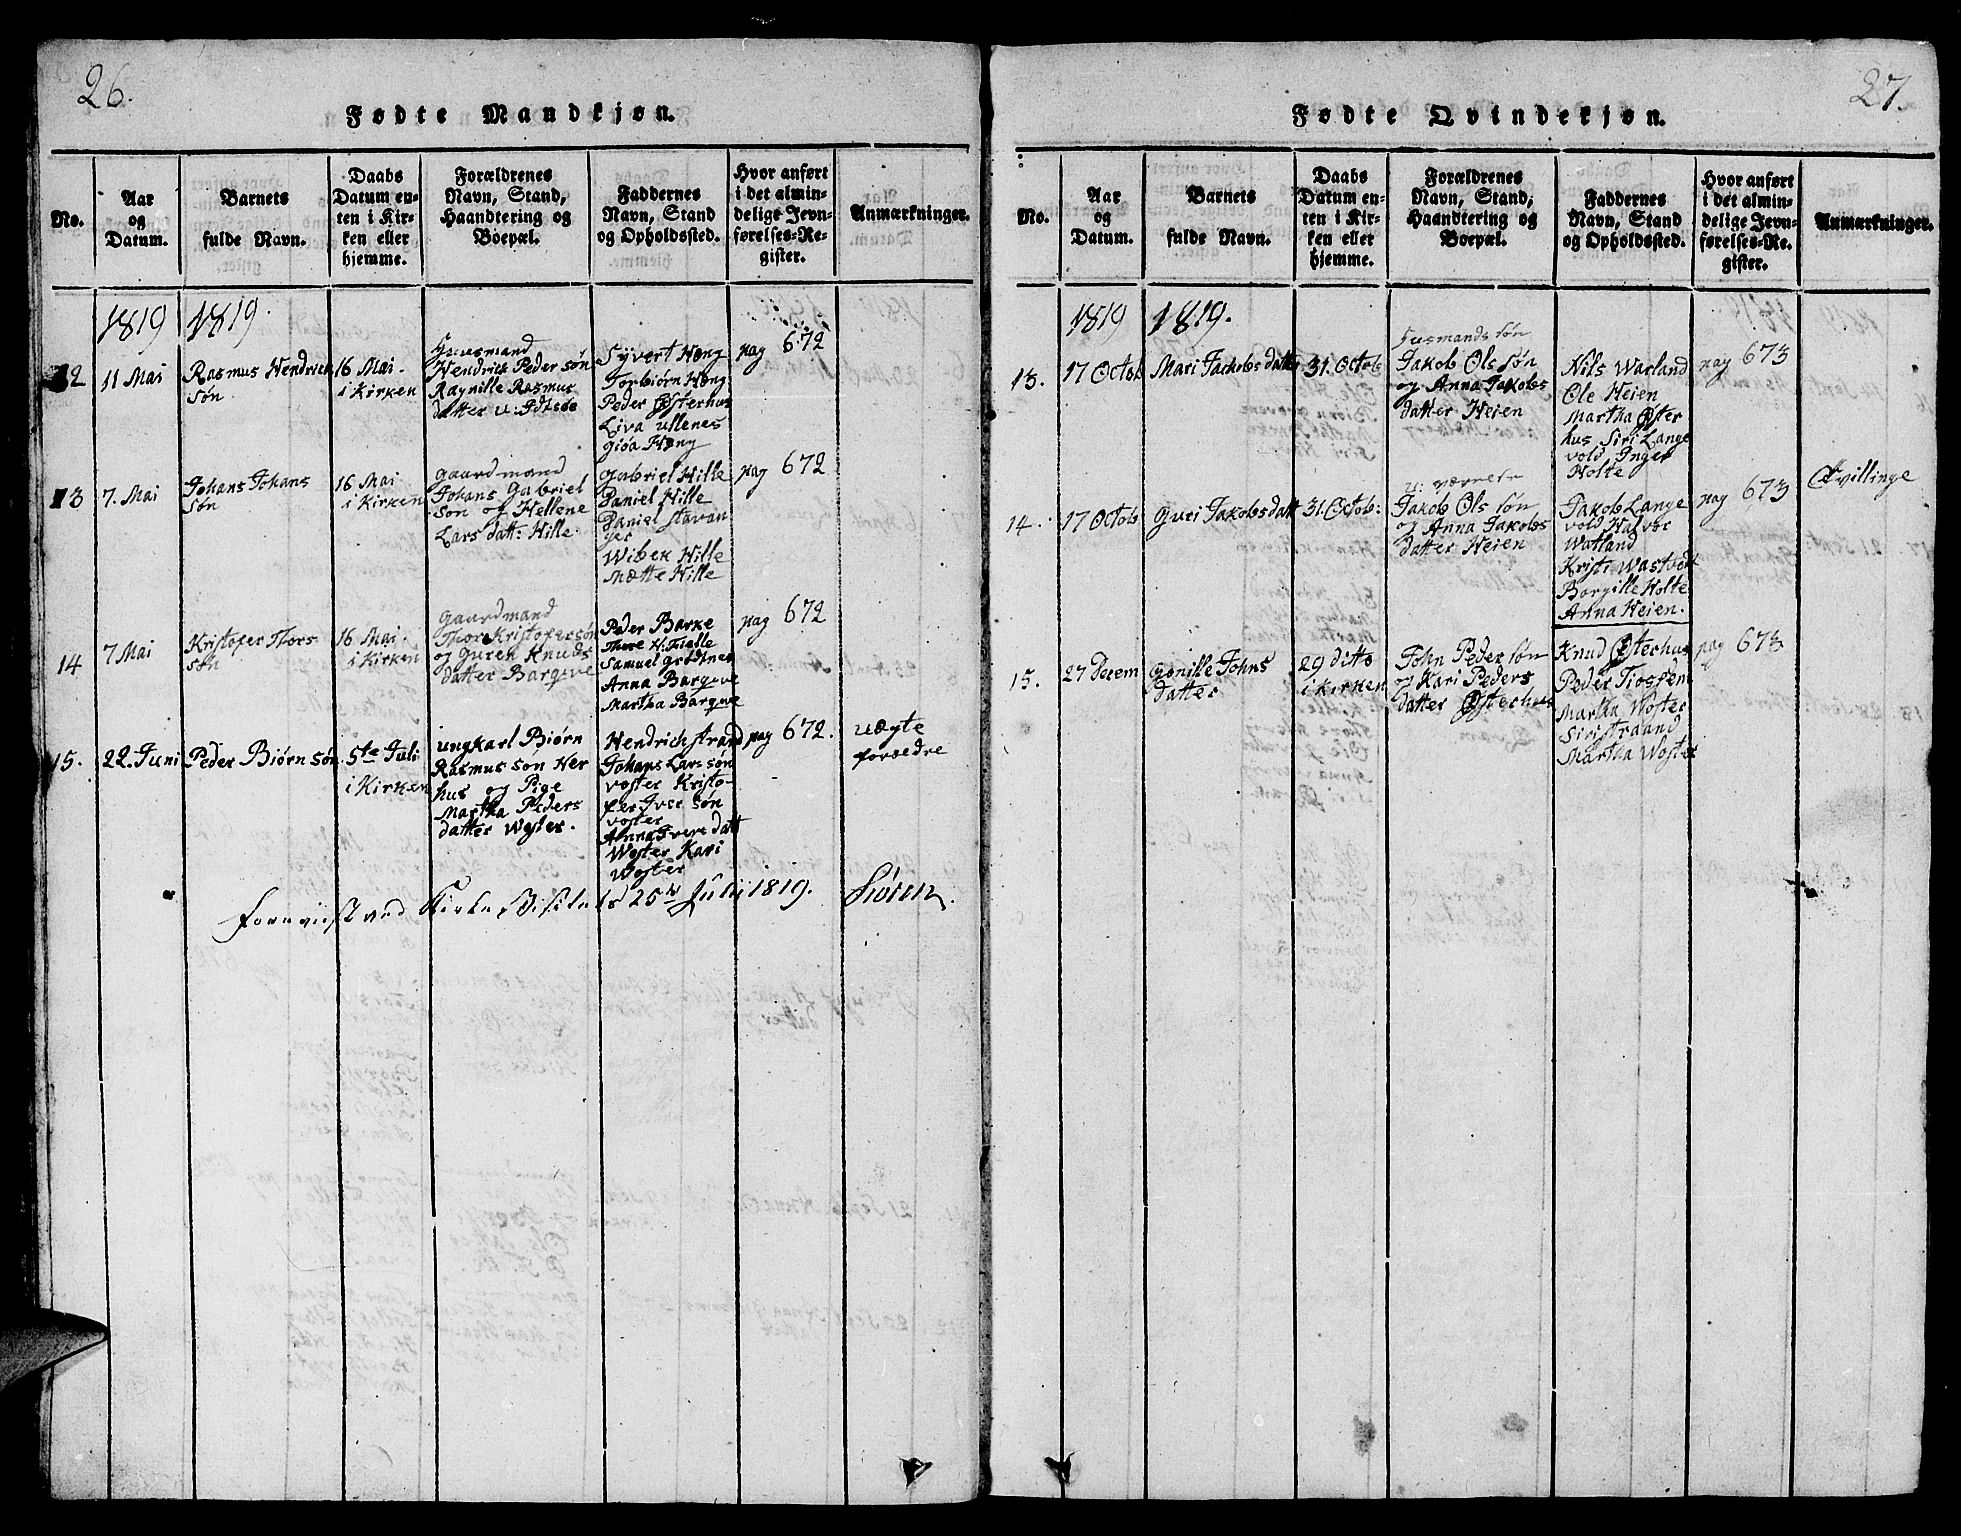 26.
Fødte Mandkjøn.
No.
Aar
og
Datum.
Barnets
fulde Navn.
Daabs
Datum en-
ten i Kir-
ken eller
hjemme.
Forældrenes
Navn, Stand,
Haandtering og
Boepæl.
Faddernes
Navn, Stand
og Opholdssted.
Hvor anført
i det almin-
delige Jevn-
førelses-Re-
gister.
Anmærkninger.
1819
1819.
12
11 Mai
Rasmus Hendrick
søn
16 Mai.
i Kirken
Huusmand
Hendrick Peder søn
Ragnille Rasmus
datter
Syvert Hæng
Torbiørn Hæng
Peder Østerhus
Liva ullenes
Giøa Hæng
pag 672
13
7. Mai
Johans Johans
søn
16 Mai
i Kirken
gaardmand
Johans Gabriel
son og Hellene
Lars datt: Hille.
Gabriel Hille
Daniel Hille
Daniel stavan
ger
Wibek Hille
Mætte Hille
pag 672
14
7 Mai
Kristofer Thors
søn
16 Mai.
i Kirken
gaardmand
Thor Kristofersøn
og Guren Knuds
datter Bargeve
Peder Barke
Thore H: Fielle
Samuel Grødtnes
Anna Bargeve
Martha Bargeve
pag 672
15.
22. Juni
Peder Biørn søn
5te Juli
i Kirken
ungkarl Biørn
Rasmus son Her
hus og Pige
Martha Peders
datter Woster.
Hendrich strand
Johans Lars søn
voster Kristo-
fer Iver søn
voster
Anna Ivers datt
Woster Kari
Woster
pag 672.
uægte
forældre
foreviist ved Kirke Visitas d 25de Julii 1819. Sören.
27.
Fødte Qvindekjøn.
No.
Aar
og
Datum.
Barnets
fulde Navn.
Daabs
Datum en-
ten i Kir-
ken eller
hjemme.
Forældrenes
Navn, Stand,
Haandtering og
Boepæl.
Faddernes
Navn, Stand
og Opholdssted.
Hvor anført
i det almin-
delige Jevn-
førelses-Re-
gister.
Anmærkninger.
1819
1819.
13.
17 Octob
Mari Jackobs datter
31. Octob
Husmands søn
Jakob Ols søn
og Anna Jakobs
datter Heien
Nils Watland
Ole Heien
Martha Øster
hus Siri Lange
vold Inger
Holte
pag 673
14.
17 Octob
Guri Jakobs datt
31. Octob:
Jakob Ols søn
og Anna Jakobs
datter Heien
Jakob Lange
vold Halvor
Watland
Kristi Wastvedt
Borgille Holte
Anna Heien.
pag 673
Tvillinge
15.
27 Decem
Gonille Johns
datter
29 ditto
i kirken
John Peder søn
og Kari Peders
datter Østerhus
Knud Østerhus
Peder Tiossem
Martha Woster
Siri straand
Martha Woster
pag 673